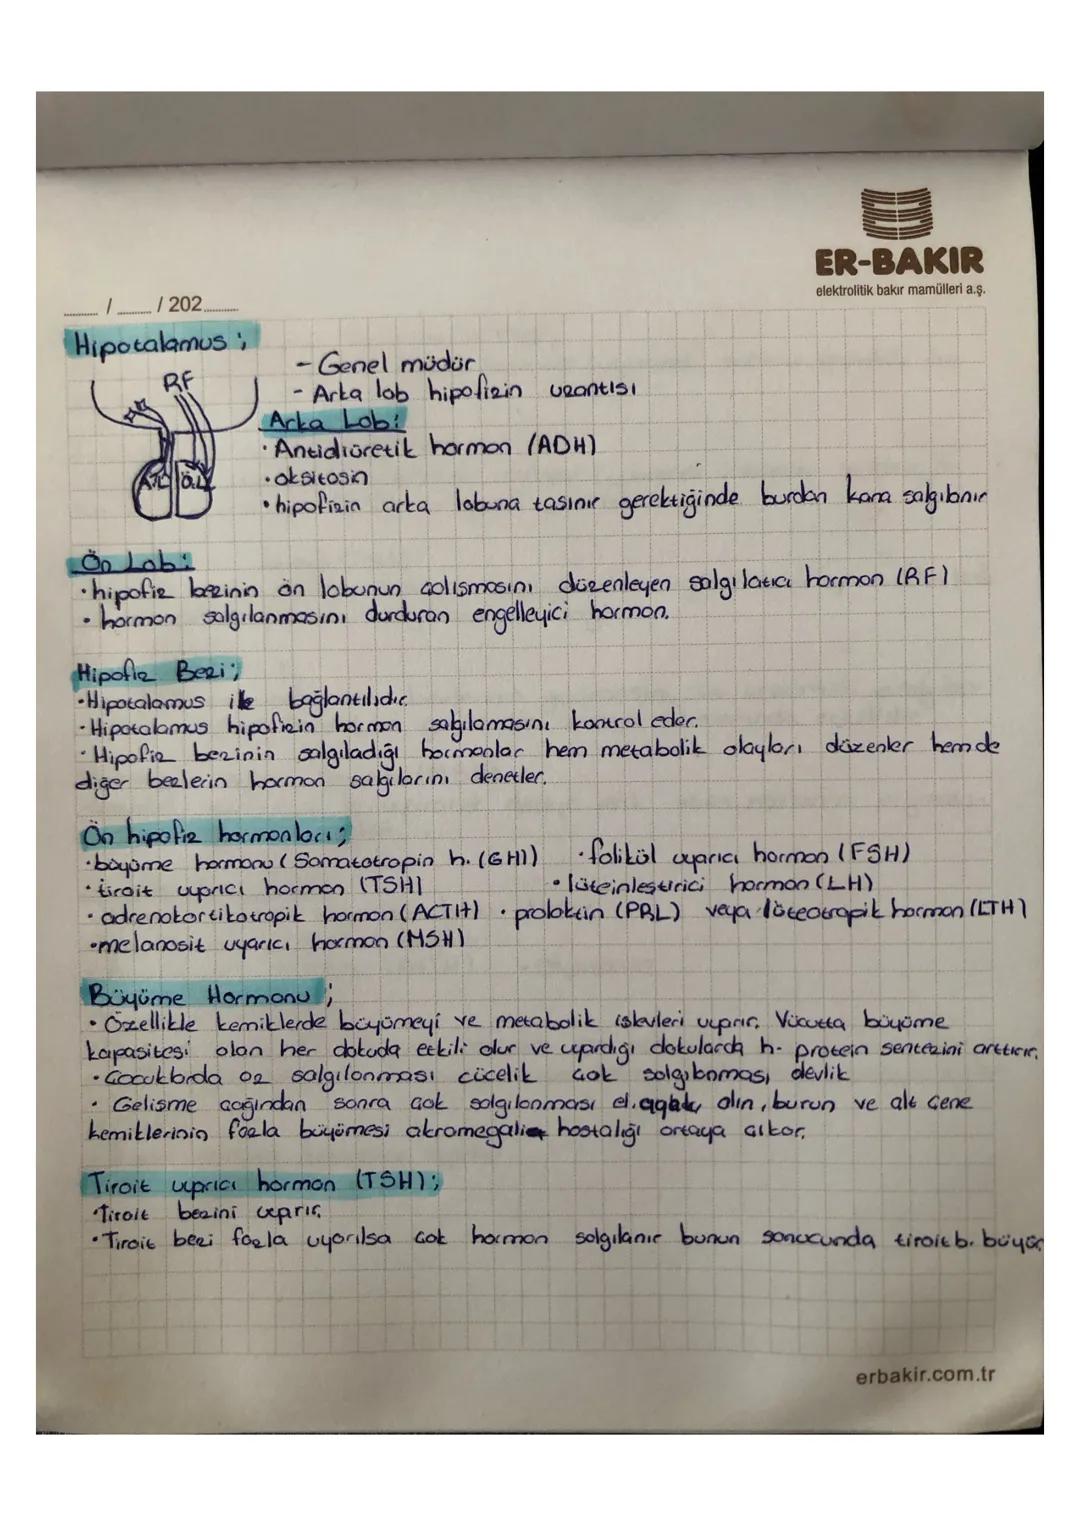 ER-BAKIR
elektrolitik bakır mamülleri a.ş.
/ / 202
Hipotalamus ;
- Genel müdür
RF
- Arka lob hipofizin uzantısı
Arka Lob:
• Antidiüretik hormon (ADH)
A.L Ö.L
• oksitosin
• hipofizin arka lobuna tasınır gerektiğinde burdan kana salgılanır
Ön Lob:
• hipofiz bezinin ön lobunun çalışmasını düzenleyen salgılatıcı hormon (RF)
• hormon salgılanmasını durduran engelleyici hormon.
Hipofiz Bezi;
• Hipotalamus ile bağlantılıdır.
• Hipotalamus hipofizin hormon salgılamasını kontrol eder.
• Hipofiz bezinin salgıladığı hormonlar hem metabolik olayları düzenler hemde
diğer bezlerin hormon salgılarını denetler.
Ön hipofiz hormonları;
• büyüme hormonu (Somatotropin h. (GH)) • folikül uyarıcı hormon (FSH)
• tiroit uyarıcı hormon (TSH) • lüteinleştirici hormon (LH)
• adrenokortikotropik hormon (ACTH) • prolaktin (PRL) veya lüteotropik hormon (LTH)
• melanosit uyarıcı hormon (MSH)
Büyüme Hormonu ;
• Özellikle kemiklerde büyümeyi ve metabolik işlevleri uyarır. Vücutta büyüme
kapasitesi olan her dokuda etkili olur ve uyardığı dokularda h. protein sentezini arttırır.
• Çocuklarda az salgılanması cücelik çok salgılanması devlik
• Gelişme çağından sonra çok salgılanması el, ayak, alın, burun ve alt çene
kemiklerinin fazla büyümesi akromegali hastalığı ortaya çıkar.
Tiroit uyarıcı hormon (TSH);
• Tiroit bezini uyarır.
• Tiroit bezi fazla uyarılsa çok hormon salgılanır bunun sonucunda tiroit b. büyür
erbakir.com.tr